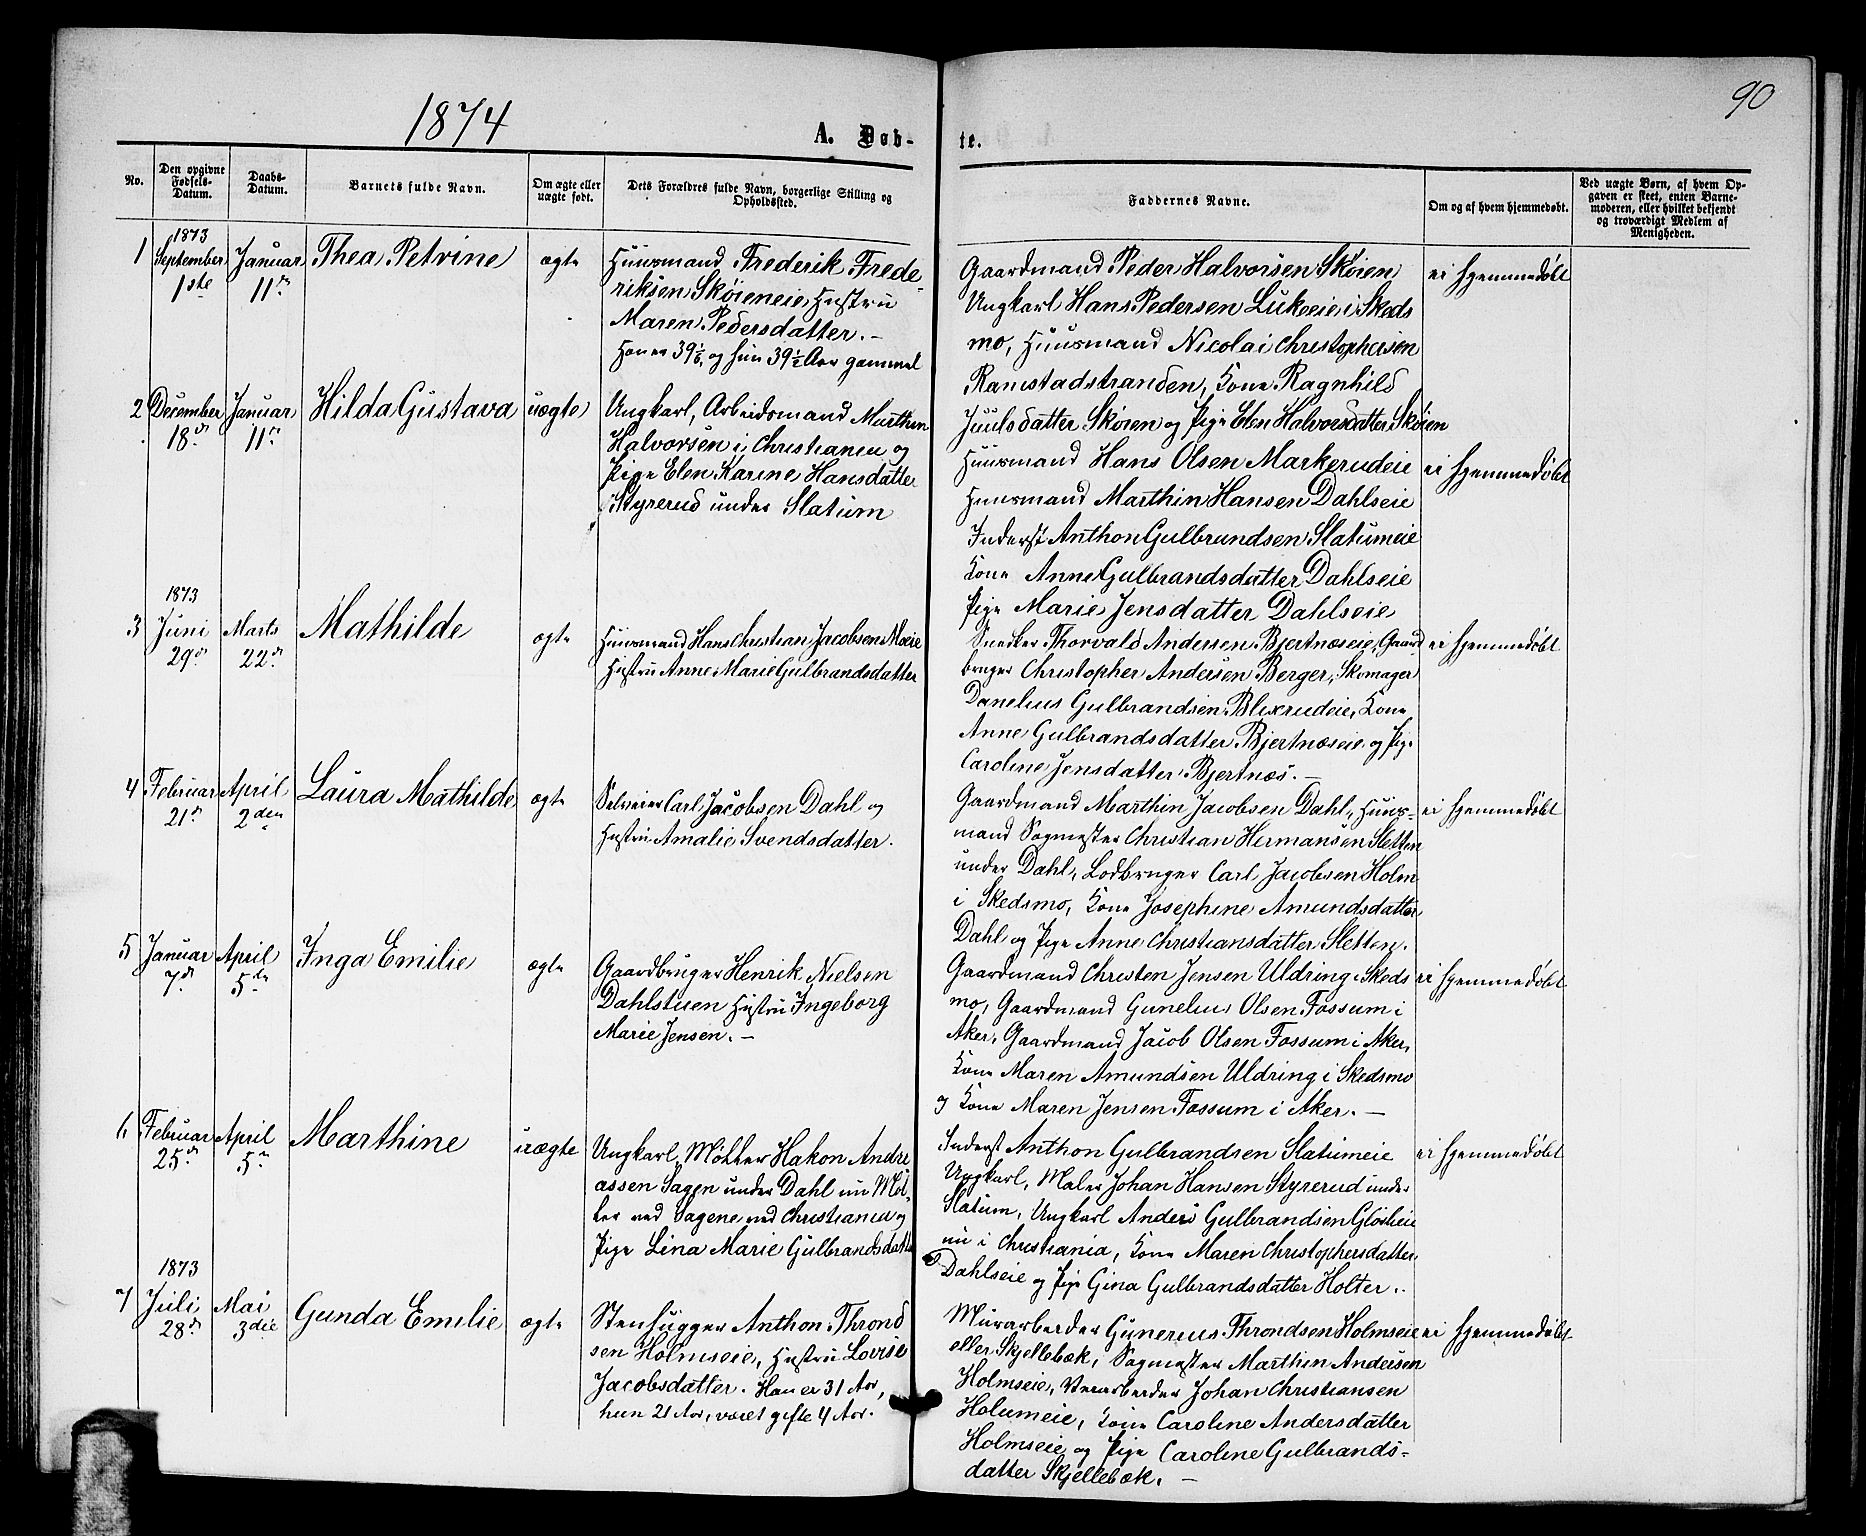 1874
90
A. Døb-
te.
No.
Den opgivne Fødsels-Datum.
Daabs-Datum.
Barnets fulde Navn.
Om ægte eller uægte født.
Dets Forældres fulde Navn, borgerlige Stilling og Opholdssted.
Faddernes Navne.
Om og af hvem hjemmedøbt.
Ved uægte Børn, af hvem Op-
gaven er skeet, enten Barne-
moderen, eller hvilket bekjendt
og troværdigt Medlem af
Menigheden.
1
1873
September
1ste
Januar
11te
Thea Petrine
ægte
Huusmand Frederik Frede-
riksen Skøieneie, Hustru
Maren Pedersdatter. –
Han er 39 og hun 39½ Aar gammel
Gaardmand Peder Halvorsen Skøien
Ungkarl Hans Pedersen Lukeeie i Skeds
mo, Huusmand Nicolai Christophersen
Ramstadstranden, Kone Ragnhild
Juulsdatter Skøien og Pige Elen Halvorsdatter Skøien
ei hjemmedøbt
2
December
18de
Januar
11te
Hilda Gustava
uægte
Ungkarl, Arbeidsmand Marthin
Halvorsen i Christiania og
Pige Elen Karine Hansdatter
Styrerud under Slatum
Huusmand Hans Olsen Markerudeie
Huusmand Marthin Hansen Dahlseie
Inderst Anthon Gulbrandsen Slatumeie
Kone Anne Gulbrandsdatter Dahlseie
Pige Marie Jensdatter Dahlseie
ei hjemmedøbt
3
1873
Juni
29de
Marts
22de
Mathilde
ægte
Huusmand Hans Christian Jacobsen Moeie
Hustru Anne Marie Gulbrandsdatter
Snecker Thorvald Andersen Bjertnæseie, Gaard
bruger Christopher Andersen Berger, Skomager
Danelius Gulbrandsen Blixrudeie, Kone
Anne Gulbrandsdatter Bjertnæseie og Pige
Caroline Jensdatter Bjertnæs. –
ei hjemmedøbt
4
Februar
21de
April
2den
Laura Mathilde
ægte
Selveier Carl Jacobsen Dahl og
Hustru Amalie Svendsdatter.
Gaardmand Marthin Jacobsen Dahl, Huus-
mand Sagmester Christian Hermansen Sletten
under Dahl, Lodbruger Carl Jacobsen Holm
i Skedsmo, Kone Josephine Amundsdatter
Dahl og Pige Anne Christiansdatter Sletten.
ei hjemmedøbt
5
Januar
7de
April
5te
Inga Emilie
ægte
Gaardbruger Henrik Nielsen
Dahlstuen Hustru Ingeborg
Marie Jensen. –
Gaardmand Christen Jensen Uldring i Skeds
mo, Gaardmand Gunelius Olsen Fossum i
Aker, Gaardmand Jacob Olsen Fossum i Aker,
Kone Maren Amundsen Uldring i Skedsmo
og Kone Maren Jensen Fossum i Aker. –
ei hjemmedøbt
6.
Februar
25de
April
5te
Marthine
uægte
Ungkarl, Møller Hakon Andre
assen Sagen under Dahl nu Møl-
ler ved Sagene ved Christiania og
Pige Lina Marie Gulbrandsdatter
Inderst Anthon Gulbrandsen Slatumeie
Ungkarl, Maler Johan Hansen Styrerud under
Slatum, Ungkarl Anders Gulbrandsen Gloslieie
nu i Christiania, Kone Maren Christophersdatter
Dahlseie og Pige Gina Gulbrandsdatter Holter.
ei hjemmedøbt
7
1873
Juli
28de
Mai
3die
Gunda Emilie
ægte
Stenhugger Anthon Thrond
sen Holmseie, Hustru Lovise
Jacobsdatter. Han er 31 Aar,
hun 21 Aar, været gifte 4 Aar.
Murarbeider Gunerius Throndsen Holmseie
eller Skjellebæk, Sagmester Marthin Andersen
Holmseie, Verarbeider Johan Christiansen
Holumeie, Kone Caroline Andersdatter
Holmseie og Pige Caroline Gulbrands-
datter Skjellebæk. –
ei hjemmedøbt